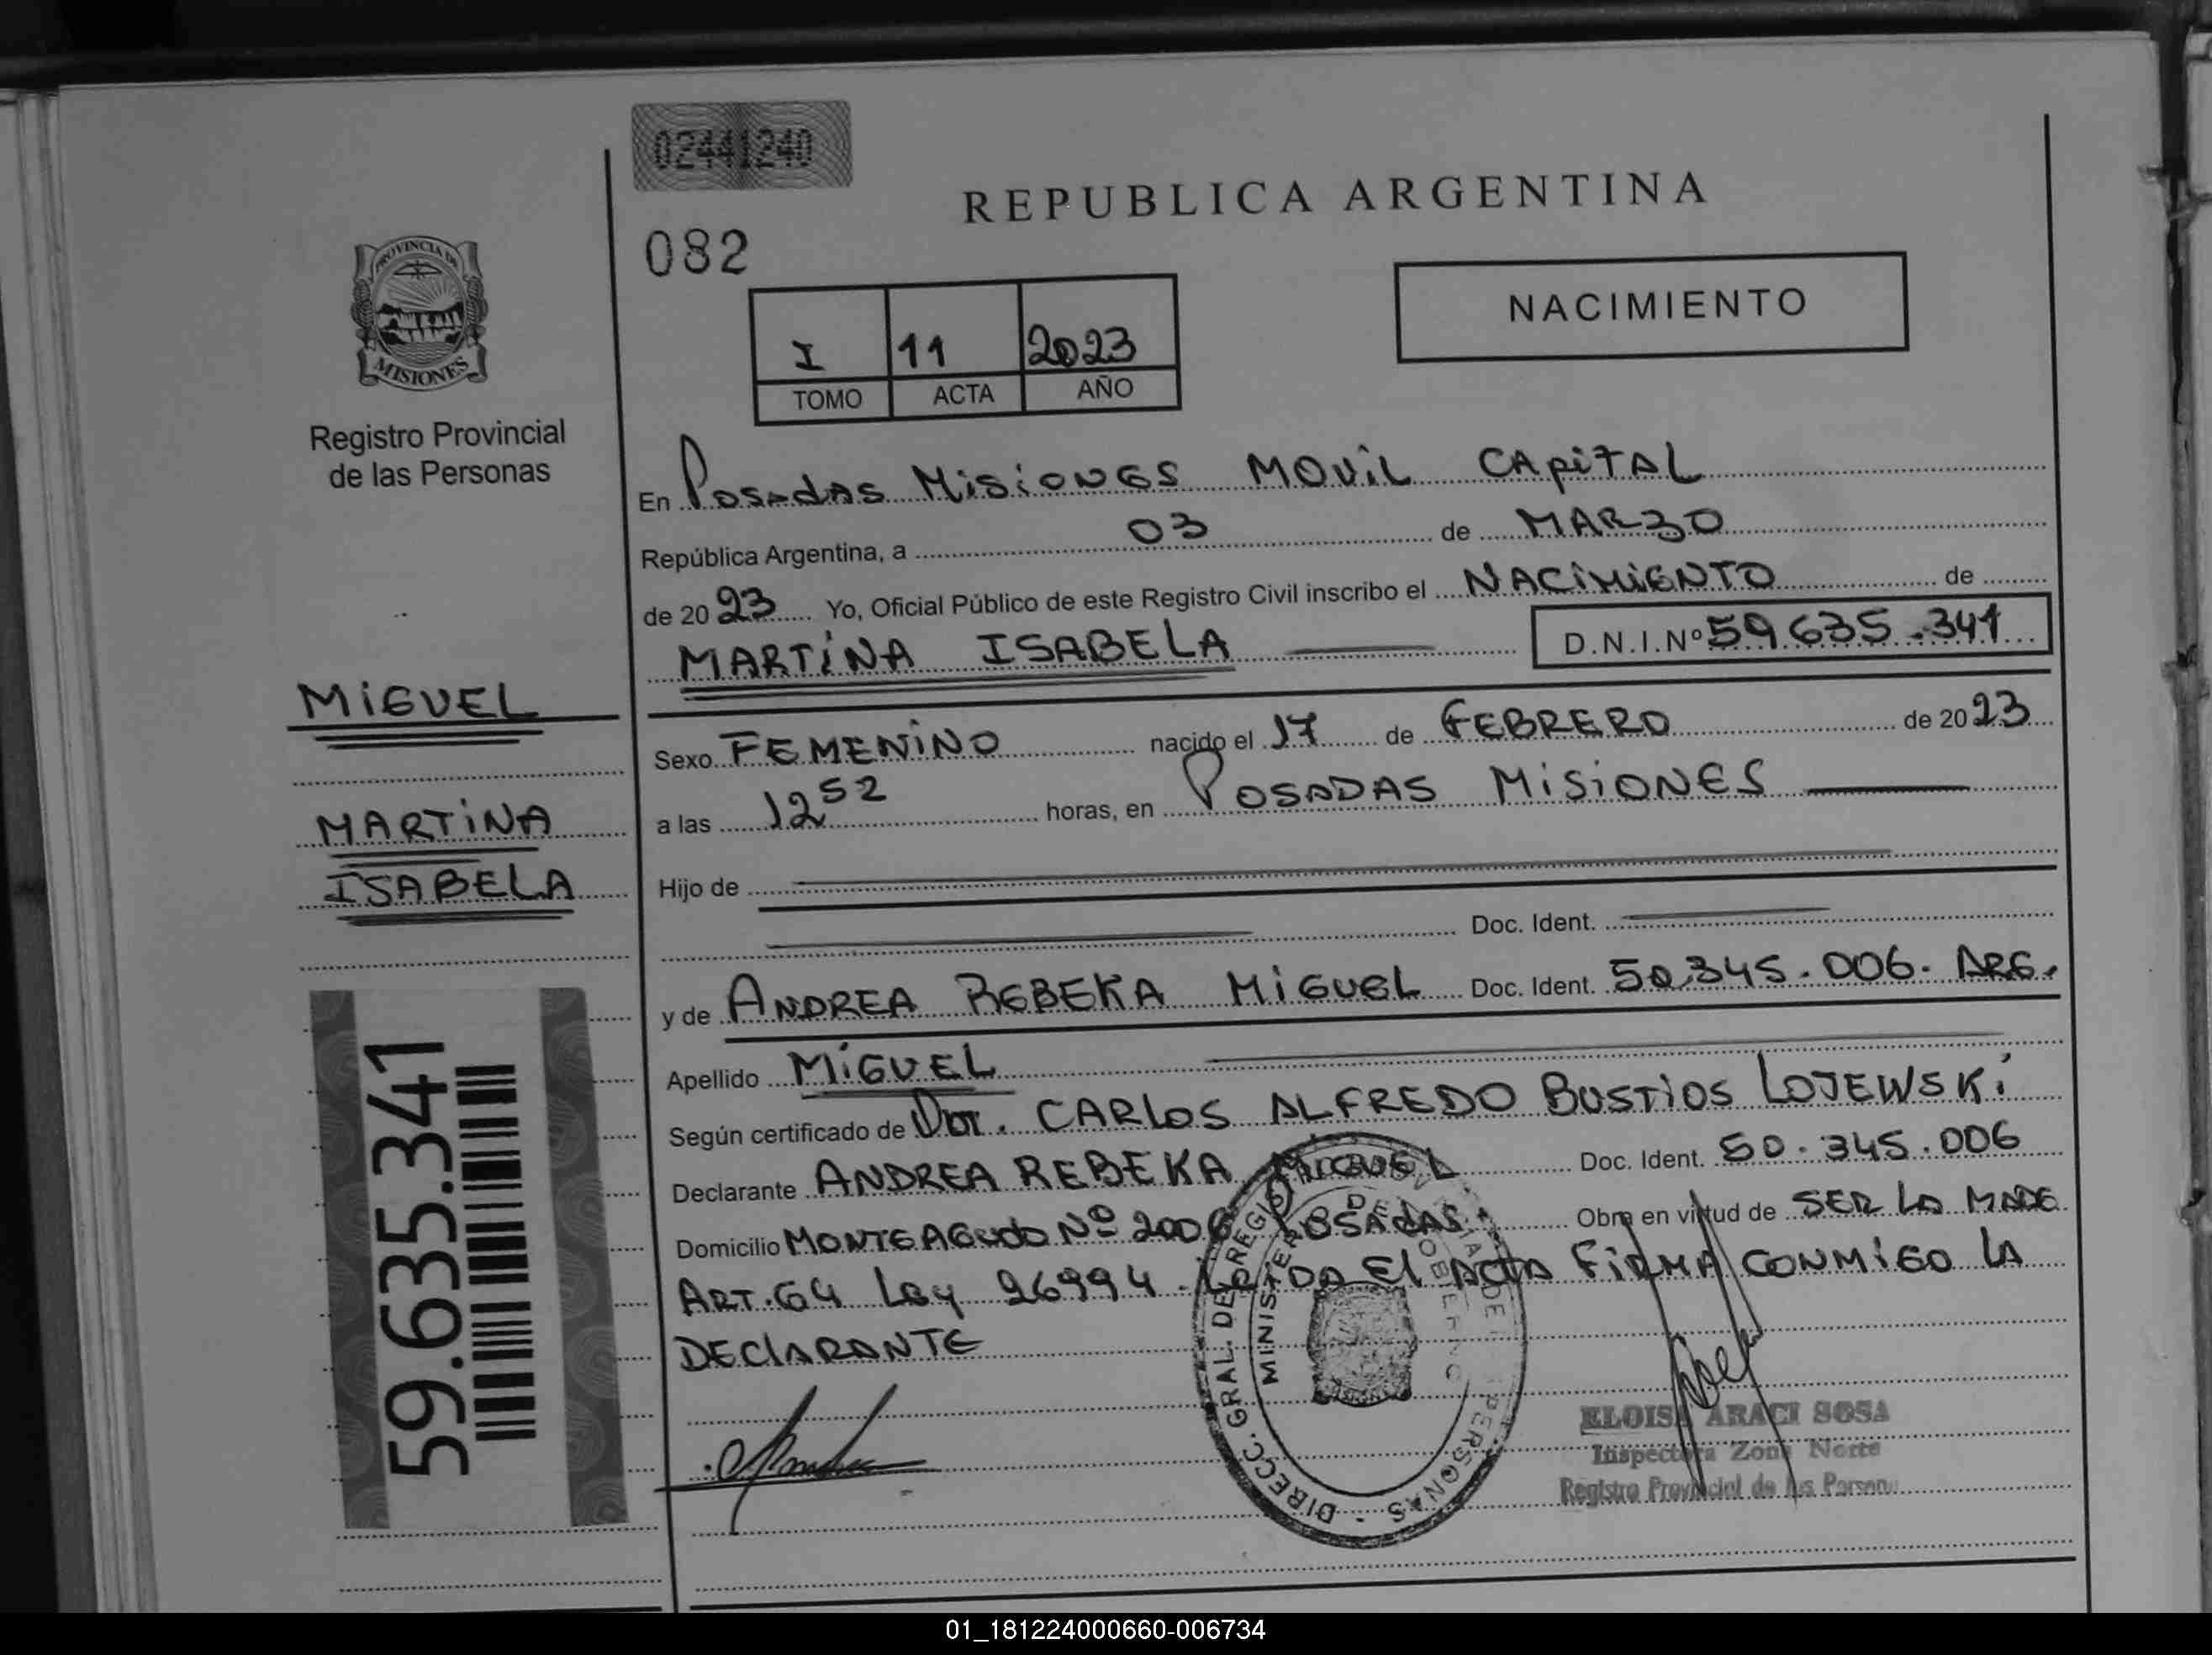 02441240
REPUBLICA ARGENTINA
082
PROVINCIA DE
MISIONES
NACIMIENTO
I 11 2023
TOMO ACTA AÑO
Registro Provincial
de las Personas
En Posadas Misiones MOVIL CAPITAL
República Argentina, a 03 de MARZO
de 2023 Yo, Oficial Público de este Registro Civil inscribo el NACIMIENTO de
MARTINA ISABELA D.N.I.Nº 59635.341
MIGUEL
MARTINA
ISABELA
Sexo FEMENINO nacido el 17 de FEBRERO de 2023
a las 12 52 horas, en POSADAS MISIONES
Hijo de
Doc. Ident.
y de ANDREA REBEKA MIGUEL Doc. Ident. 50.345.006. ARG.
Apellido MIGUEL
Según certificado de Dr. CARLOS ALFREDO BUSTIOS LOJEWSKI
Declarante ANDREA REBEKA MIGUEL Doc. Ident. 50.345.006
Domicilio MONTEAGUDO Nº 2006 POSADAS. Obra en virtud de SER LA MADRE
ART. 64 Ley 26994. LEIDA El ACTA FIRMA CONMIGO LA
DECLARANTE
59.635.341
DIRECC. GRAL. DE REGIS PERSONAS
MINISTER DE GOBIERNO
ELOISA ARACI SOSA
Inspectora Zona Norte
Registro Provincial de las Personas
01_181224000660-006734